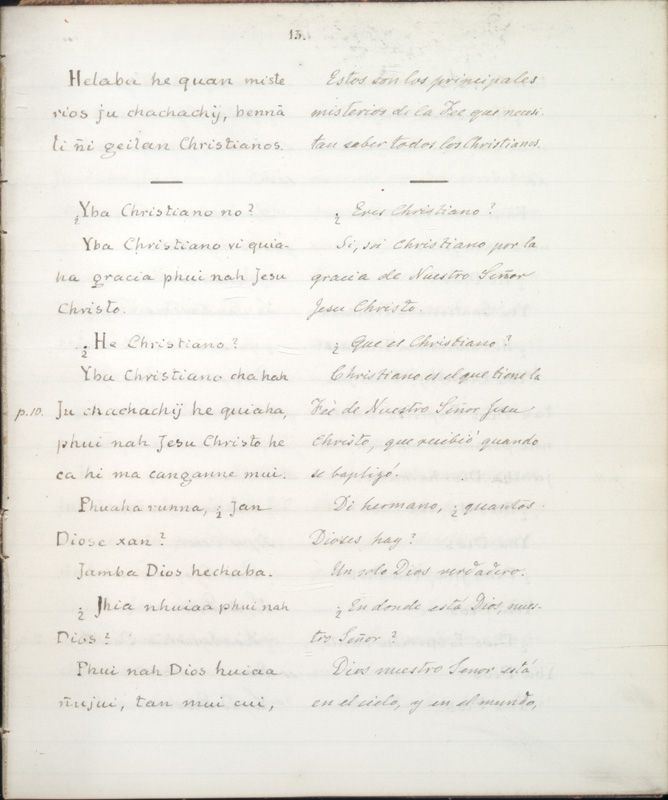 13.
Helaba he quan miste
rios ju chachachij, bennā
li ñi geilan Christianos.
¿Yba Christiano no?
Yba Christiano vi quia-
ha gracia phui nah Jesu
Christo.
¿He Christiano?
Yba Christiano cha hah
p.10. Ju chachachij he quiaha,
phui nah Jesu Christo he
ca hi ma canganne mui.
Phuaha runna, ¿Jan
Diose xan?
Jamba Dios hechaba.
¿Jhia nhuiaa phui nah
Dios?
Phui nah Dios huiaa
ñujui, tan mui cui,
Estos son los principales
misterios de la Fee que necesi-
tan saber todos los Christianos.
¿Eres Christiano?
Si, soi Christiano por la
gracia de Nuestro Señor
Jesu Christo.
¿Que es Christiano?
Christiano es el que tiene la
Fée de Nuestro Señor Jesu
Christo, que recibió quando
se baptizó.
Di hermano, ¿quantos
Dioses hay?
Un solo Dios verdadero.
¿En donde está Dios, nues-
tro Señor?
Dios nuestro Senor está
en el cielo, y en el mundo,